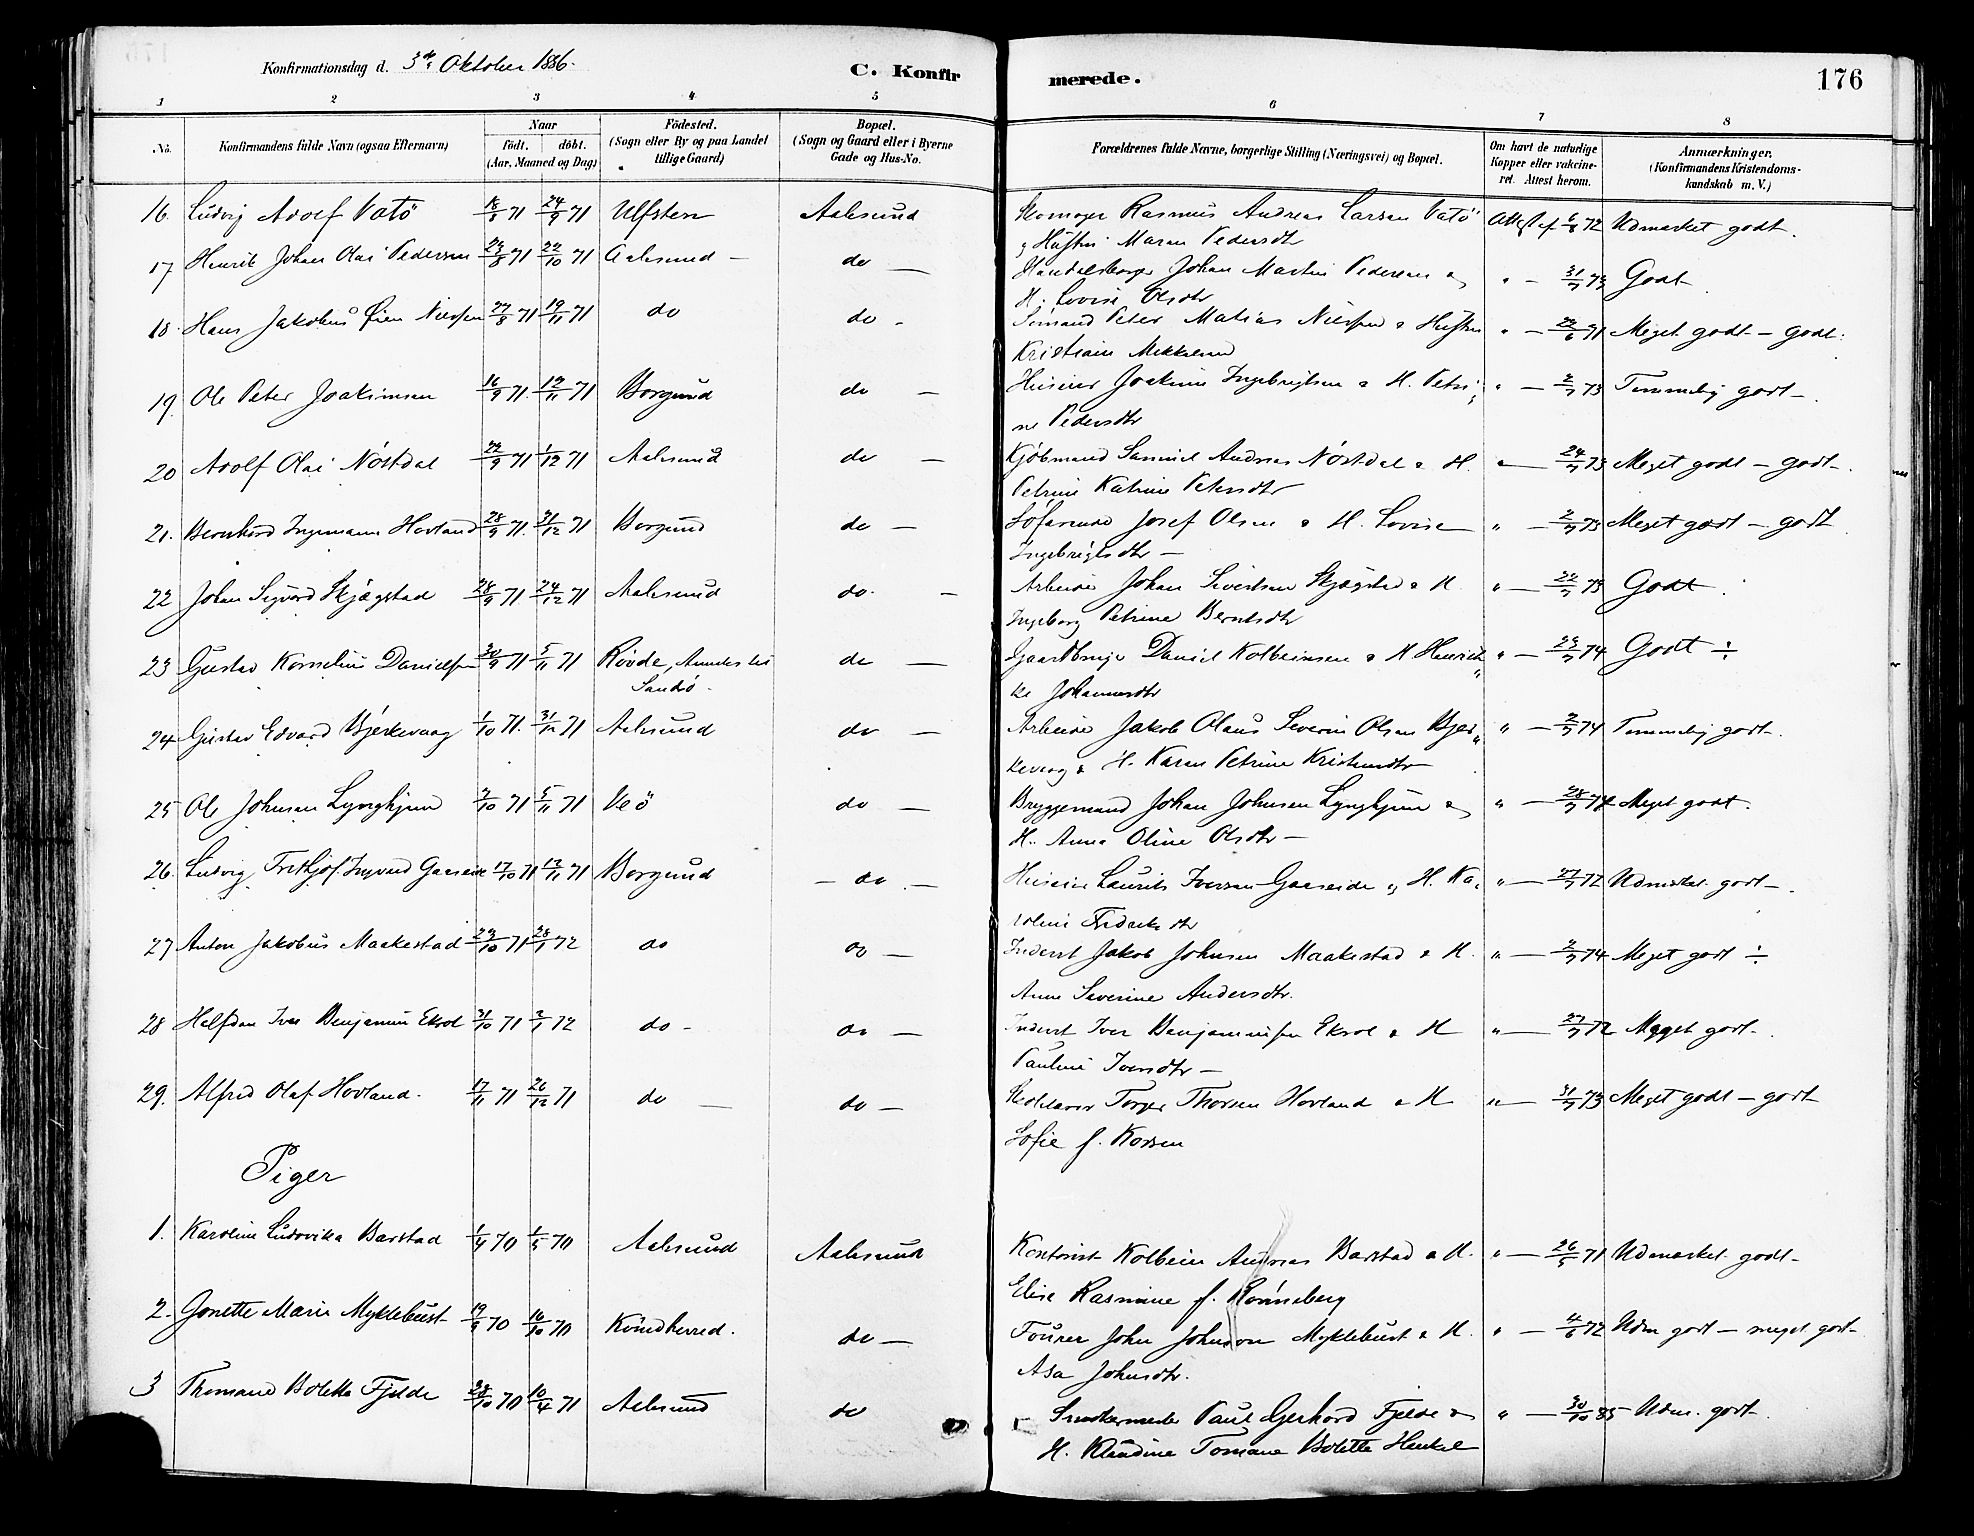 Konfirmationsdag d. 3die Oktober 1886.
C. Konfirmerede.
176
1 2 3 4 5 6 7 8
No.
Konfirmandens fulde Navn (ogsaa Efternavn)
Naar
födt. döbt.
(Aar, Maaned og Dag)
Födested.
(Sogn eller By og paa Landet tillige Gaard)
Bopæl.
(Sogn og Gaard eller i Byerne Gade og Hus-No.
Forældrenes fulde Navne, borgerlige Stilling (Næringsvei) og Bopæl.
Om havt de naturlige Kopper eller vakcineret. Attest herom.
Anmærkninger.
(Konfirmandens Kristendomskundskab m. V.)
16. Ludvig Adolf Vatö 18/8 71 24/9 71 Ulfsten Aalesund Skomager Rasmus Andreas Larsen Vatö Attest af 6/8 72 Udmærket godt.
& Hustru Maren Pedersdtr
17 Henrik Johan Olai Pedersen 23/8 71 22/10 71 Aalesund do Handelsborger Johan Martin Pedersen & " 31/7 73 Godt
H. Lovise Olsdtr
18. Hans Jakobus Øien Nilssen 27/8 71 19/11 71 do do Sömand Peter Matias Nilssen & Hustru " 22/6 71 Meget godt - godt.
Kristiane
19. Ole Peter Joakimsen 16/9 71 12/11 71 Borgund do Huseier Joakim Ingebrigtsen & H. Petri- " 2/7 73 Temmelig godt
ne Pedersdtr
20 Adolf Olai Nöstdal 22/9 71 1/12 71 Aalesund do Kjöbmand Samuel Andreas Nöstdal & H. " 24/7 73 Meget godt - godt
Petrine Katrine Petersdtr
21. Bernhard Ingemann Hovland 28/9 71 31/12 71 Borgund do Josef Olsen & H. Lovise " 2/7 73 Meget godt - godt
Ingebrigtsdtr
22 Johan Sigvard Skjægstad 28/9 71 24/12 71 Aalesund do. Arbeider Johan Sivertsen Skjægstad & H. " 22/7 73 Godt
Ingeborg Petrine Berntsdtr
23 Gustav Kornelius Danielsen 30/9 71 5/11 71 Rövde, Annex til do Gaardbruger Daniel Kolbeinsen & H Henrik- " 23/7 74 Godt ÷
Sandö. ke Johannesdtr
24 Gustav Edvard Bjerkevaag 1/10 71. 31/12 71 Aalesund do Arbeider Jakob Olaus Severin Olsen Bjer- " 2/7 74 Temmelig godt.
kevaag & H. Karen Petrine Kristensdtr
25 Ole Johnsen Lynghjem 2/10 71 5/11 71 Veö do Bryggemand Johan Johnsen Lynghjem & " 28/7 74 Meget godt.
H. Anne Oline Olsdtr
26. Ludvig Frithjof Ingvard Gaaseide 17/10 71 12/11 71 Borgund do Huseier Laurits Iversen Gaaseide & H. Ka- " 27/7 72 Udmærket godt
roline Fredriksdtr
27 Anton Jakobus Maakestad 29/10 71 28/1 72 do do Inderst Jakob Johnsen Maakestad & H. " 2/7 74 Meget godt ÷
Anne Severine Andersdtr.
28 Halfdan Iver Benjamin Ekrol 31/10 71 2/1 72 do do Inderst Iver Benjaminsen Ekrol & H " 27/7 72 Meget godt.
Pauline Iversdtr
29. Alfred Olaf Hovland. 17/11 71 26/12 71 do do Torger Thorsen Hovland & H " 31/7 73 Meget godt - godt
Sofie f. Korsen
Piger
1. Karoline Ludovika Barstad 1/4 70 1/5 70 Aalesund Aalesund Kontorist Kolbein Andreas Barstad & H. " 26/5 71 Udmærket godt
Elise Rasmine f. Rönneberg
2. Jonette Marie Myklebust 19/9 70 16/10 70 Kvindherred. do Tourer John Johnson Myklebust & H. " 4/6 72 Udm godt - meget godt
Asa Johnsdtr.
3 Thomane Bolette Fjelde 28/10 70 10/4 71 Aalesund do Paul Gerhard Fjelde & " 30/10 85 Udm. godt
H. Klaudine Tomane Bolette Henkel